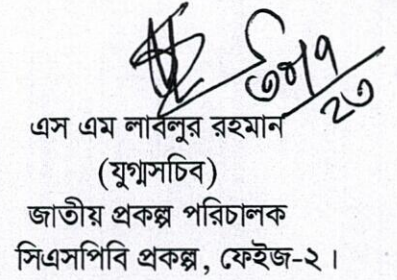 এস এম লাবলুর রহমান
(যুগ্মসচিব)
জাতীয় প্রকল্প পরিচালক
সিএসপিবি প্রকল্প, ফেইজ-২।